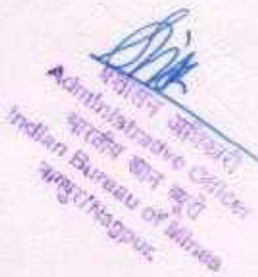 प्रशासन अधिकारी
Administrative Officer
भारतीय खान ब्यूरो
Indian Bureau of Mines
नागपुर/Nagpur.